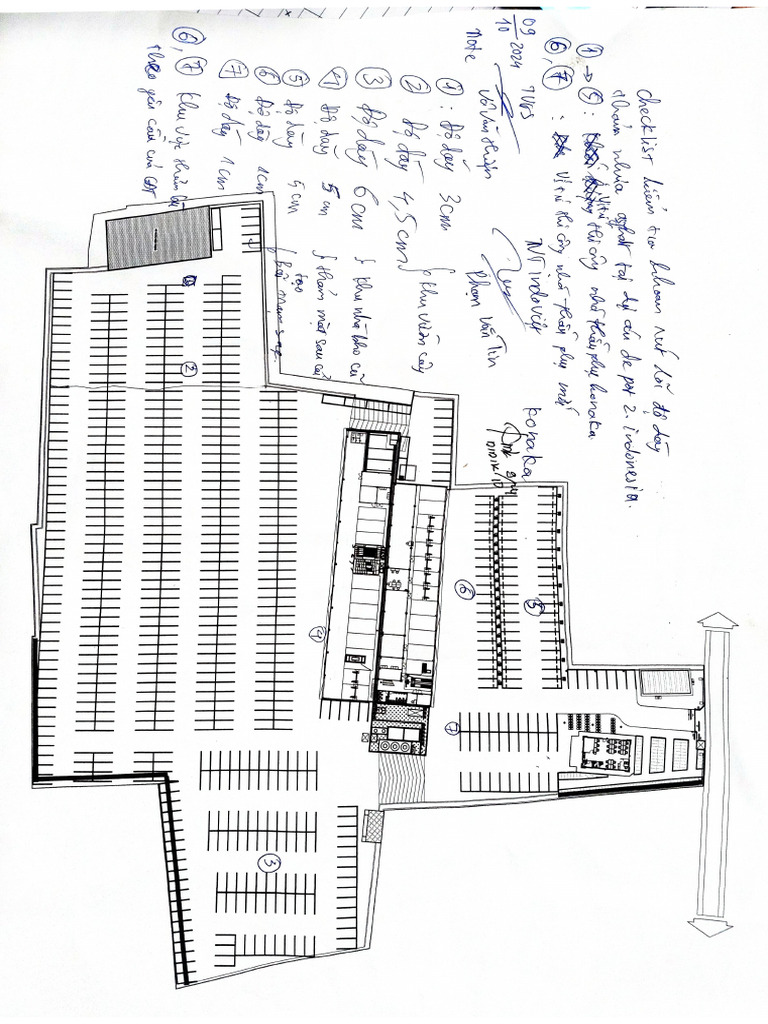 checklist kiểm tra khoan rút lõi độ dày
thảm nhựa asphalt tại dự án depot 2. indonesia.
① → ⑤ : vị trí thi công nhà thầu phụ konaka
⑥, ⑦ : vị trí thi công nhà thầu phụ mới
09/10 2024 TVGS NT indovin konaka
Võ văn thiện Phạm Văn Tín
Note
① : Độ dày 3cm
② Độ dày 4,5cm } khu vườn cây
③ Độ dày 6cm } khu nhà kho cũ
④ Độ dày 5cm } thảm mặt sau cũ
⑤ Độ dày 5cm } tạo
⑥ Độ dày 1cm
⑦ Độ dày 1cm
⑥, ⑦ khu vực thảm
theo yêu cầu của CĐT
①
②
③
④
⑤
⑥
⑦